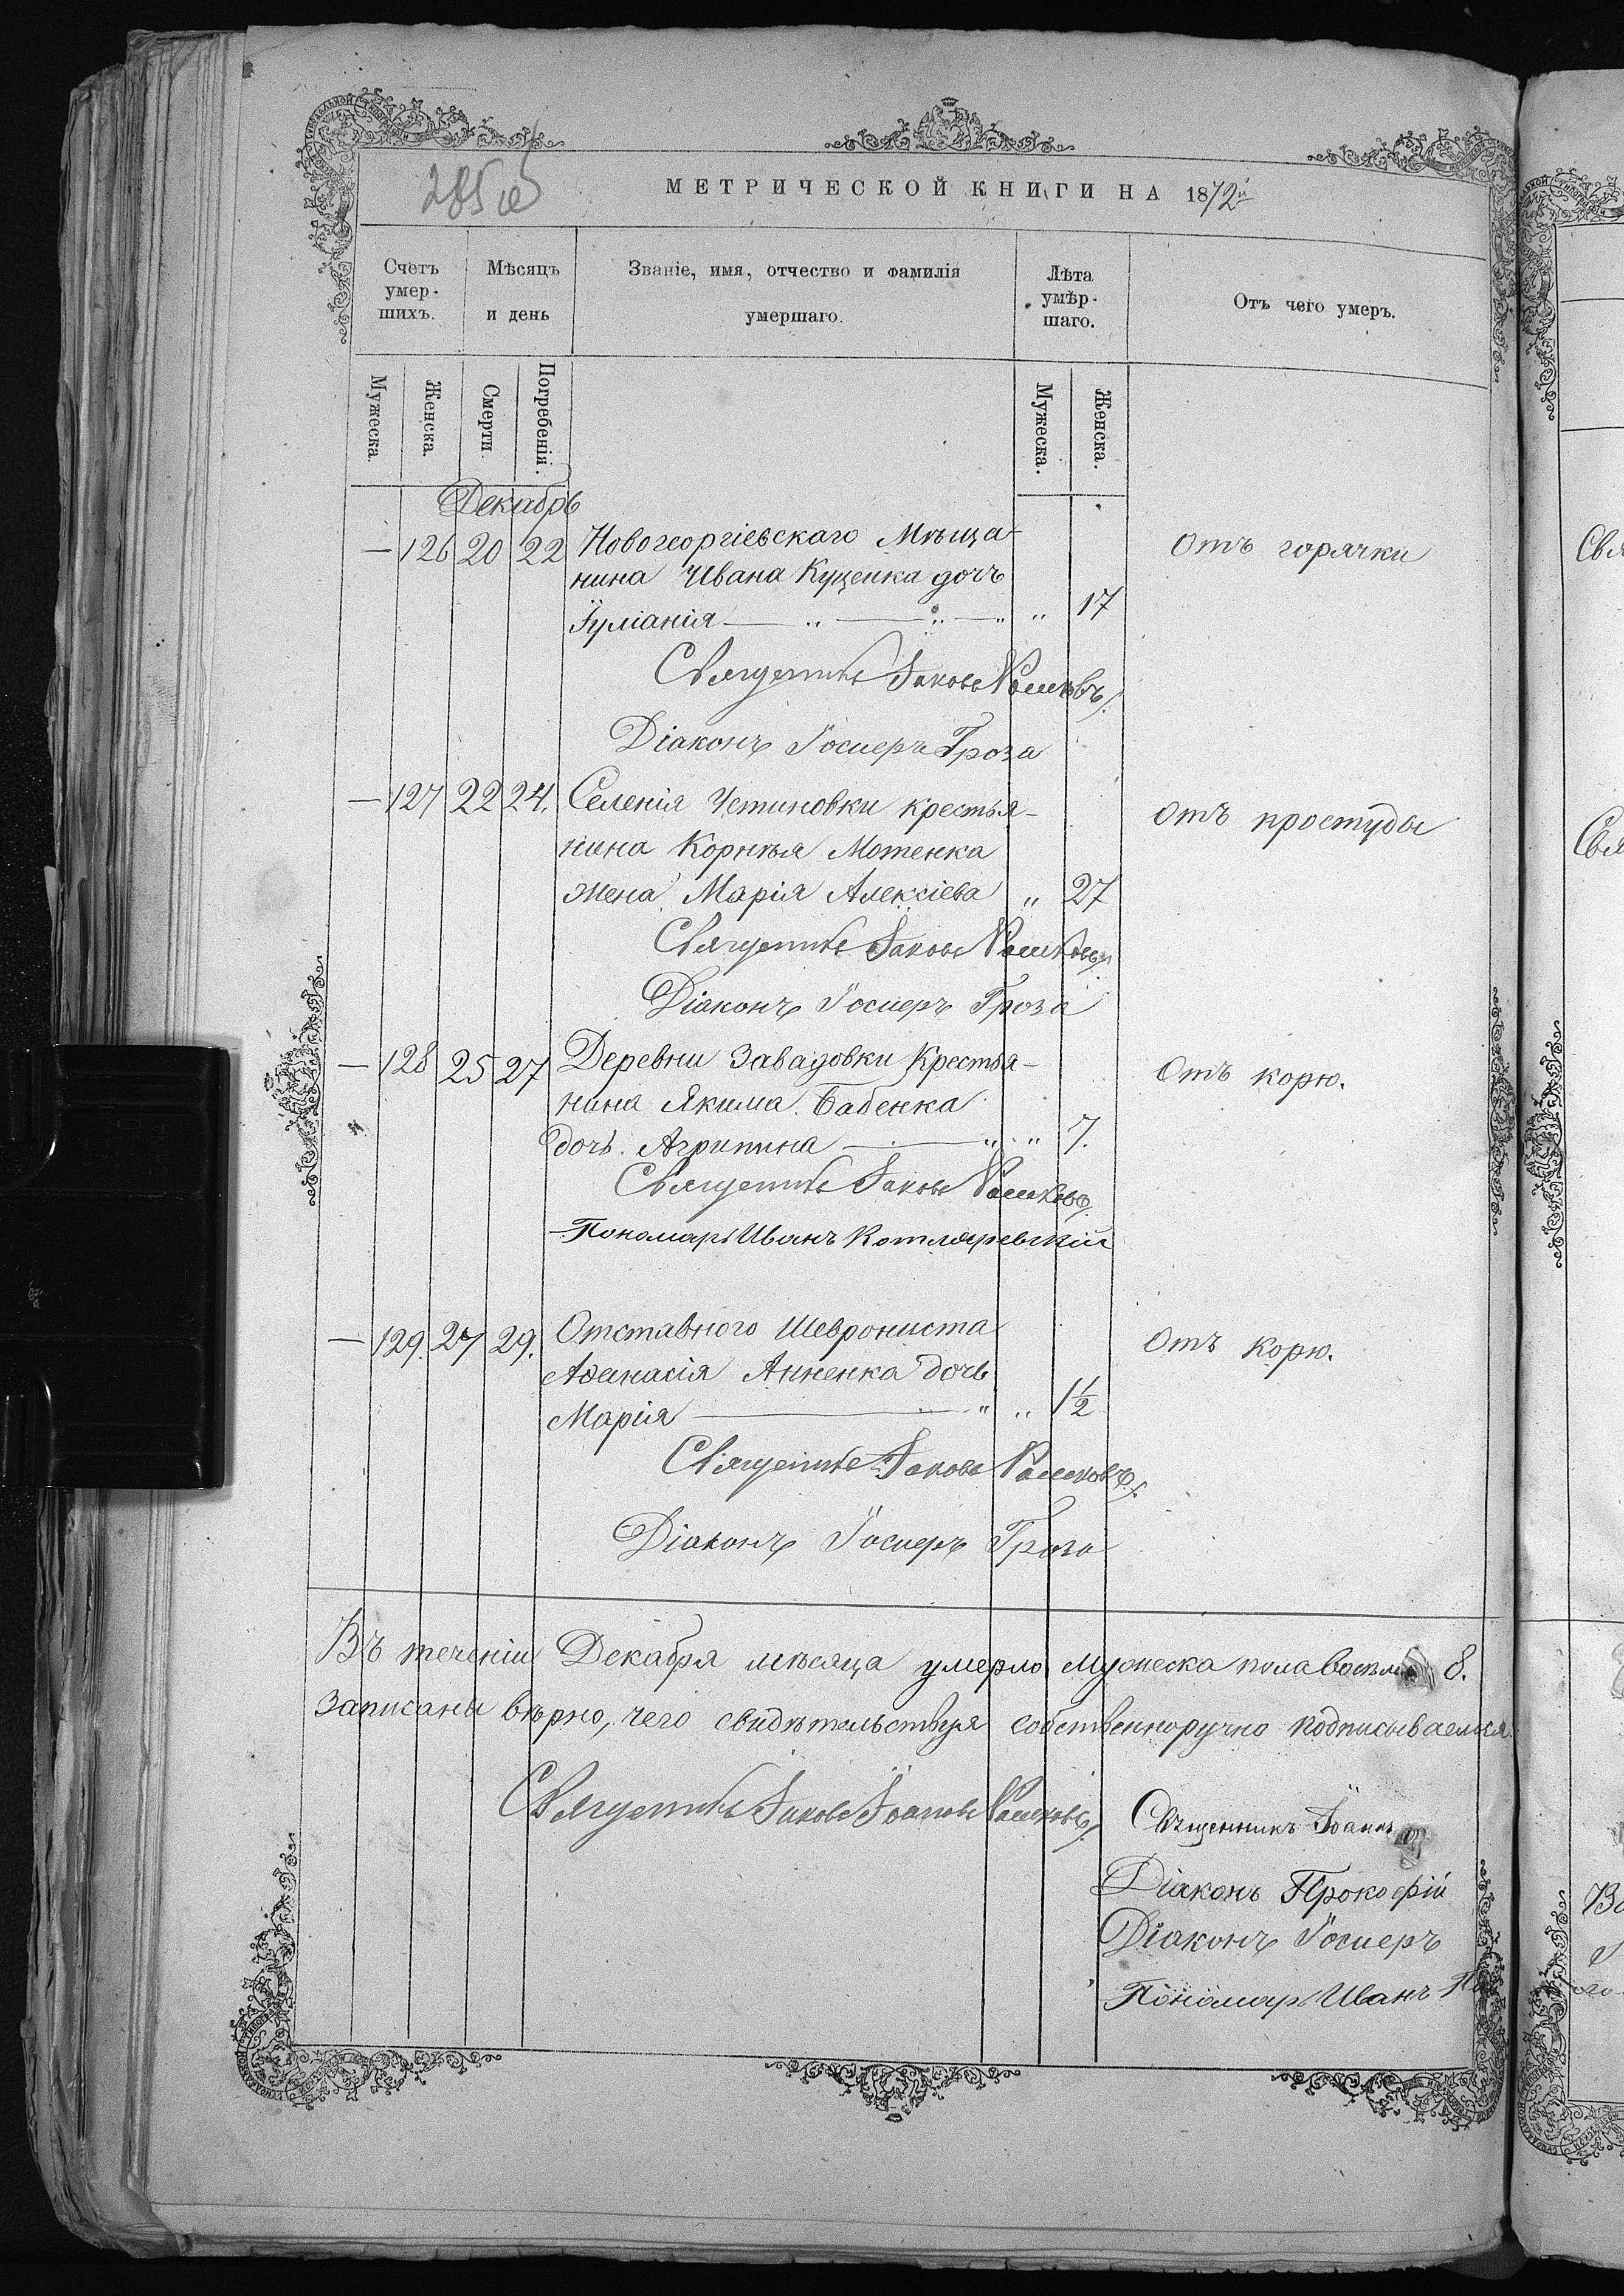 МЕТРИЧЕСКОЙ КНИГИ НА 1872й
Счетъ умер-шихъ.
Мѣсяцъ и день
Званіе, имя, отчество и фамилія умершаго.
Лѣта умѣр-шаго.
Отъ чего умеръ.
Мужеска. Женска. Смерти. Погребенія. Мужеска. Женска.
Декабрь
— 126 20 22 Новогеоргіевскаго Мѣща- Отъ горячки
нина Ивана Куценка дочь
Іуліанія — „ — „ — „ „ 17
Священникъ Іаковъ
Діаконъ Іосифъ Гроза
— 127 22 24. Селенія Устиновки крестья- Отъ простуды
нина Корнѣя Мотенка
жена Марія Алексіева „ 27
Священникъ Іаковъ
Діаконъ Іосифъ Гроза
— 128 25 27 Деревни Завадовки Крестья- Отъ корю.
нина Якима Бабенка
дочь Агрипина — „ „ 7.
Священникъ Іаковъ
Пономарь Иванъ Котляревскій
— 129. 27 29. Отставного Шеврониста Отъ корю.
Аѳанасія Анненка дочь
Марія — „ „ 1½
Священникъ Іаковъ
Діаконъ Іосифъ Гроза
Въ теченіи Декабря мѣсяца умерло мужеска пола восемь 8.
записаны вѣрно, чего свидѣтельствуя собственноручно подписываемся
Священникъ Іаковъ Іоановъ
Священникъ Іоаннъ
Діаконъ Прокофій
Діаконъ Іосифъ
Пономарь Иванъ